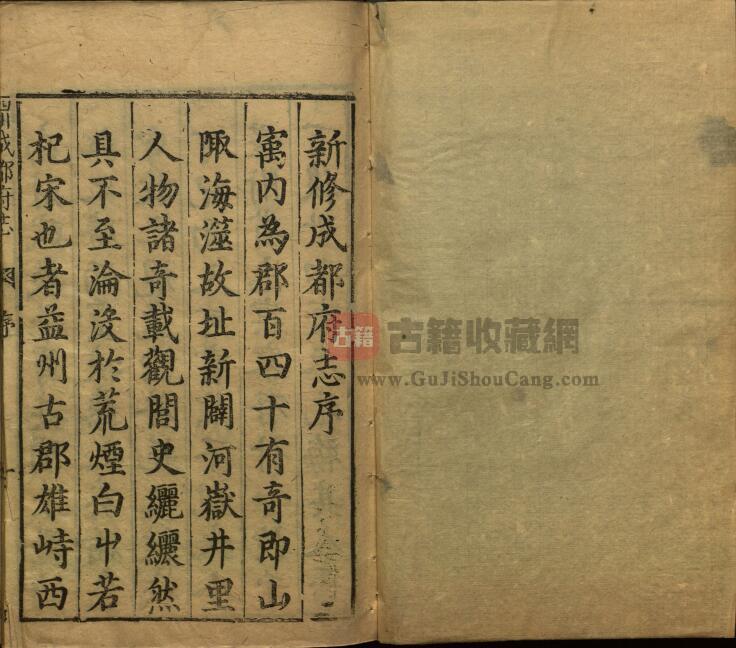 新修成都府志序
寓内為郡百四十有奇即山
陬海澨故址新闢河嶽井里
人物諸奇載觀閭史纚纚然
具不至淪没於荒煙白屮若
杞宋也者益州古郡雄峙西
序
古籍
古籍收藏網
www.GuJiShouCang.com